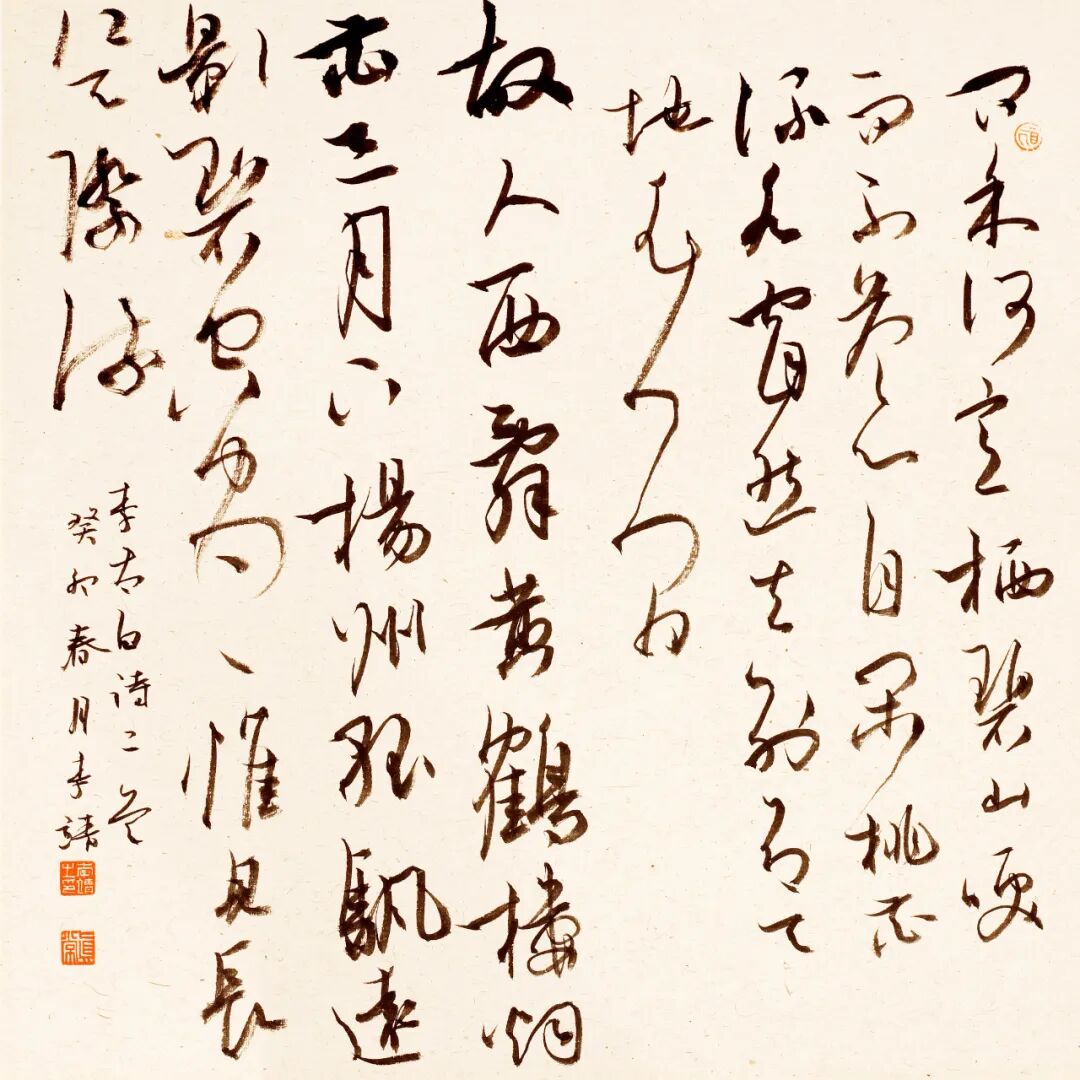 问余何意栖碧山咲
而不答心自闲桃花
流水窅然去别有天
地非人间
故人西辭黄鶴樓烟
花三月下揚州孤帆遠
影碧空盡惟見長
江天際流
李太白诗二首
癸卯春月李靖